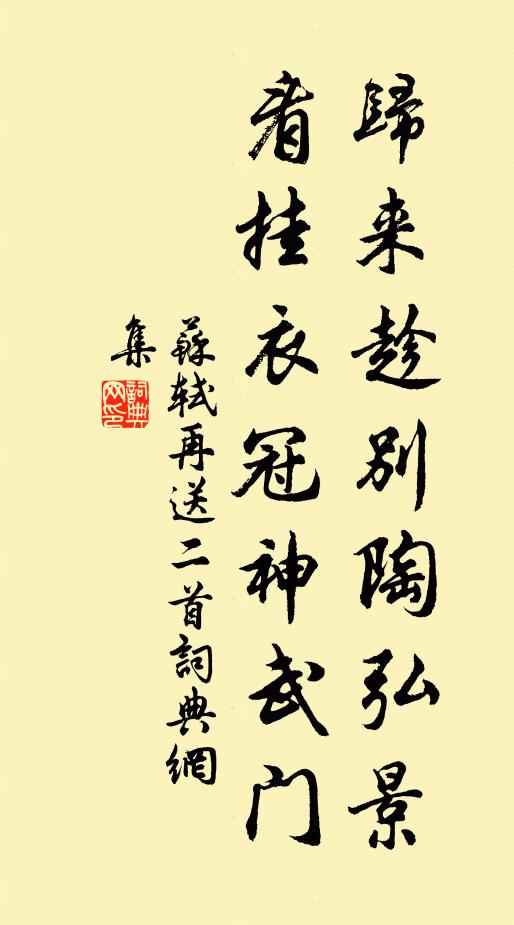 歸来趁别陶弘景
看挂衣冠神武门
蘇軾再送二首詞典網
集
詞典網印